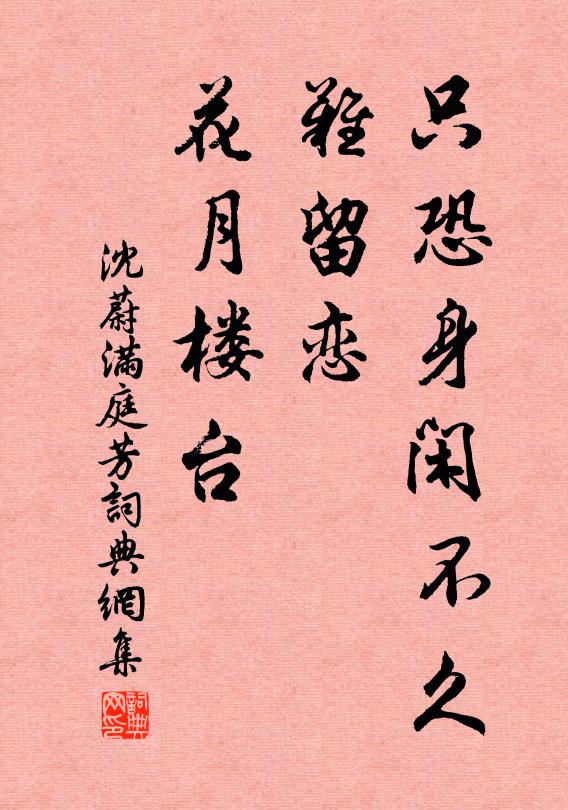 只恐身闲不久
难留恋
花月楼台
沈蔚满庭芳詞典網集
詞典网印